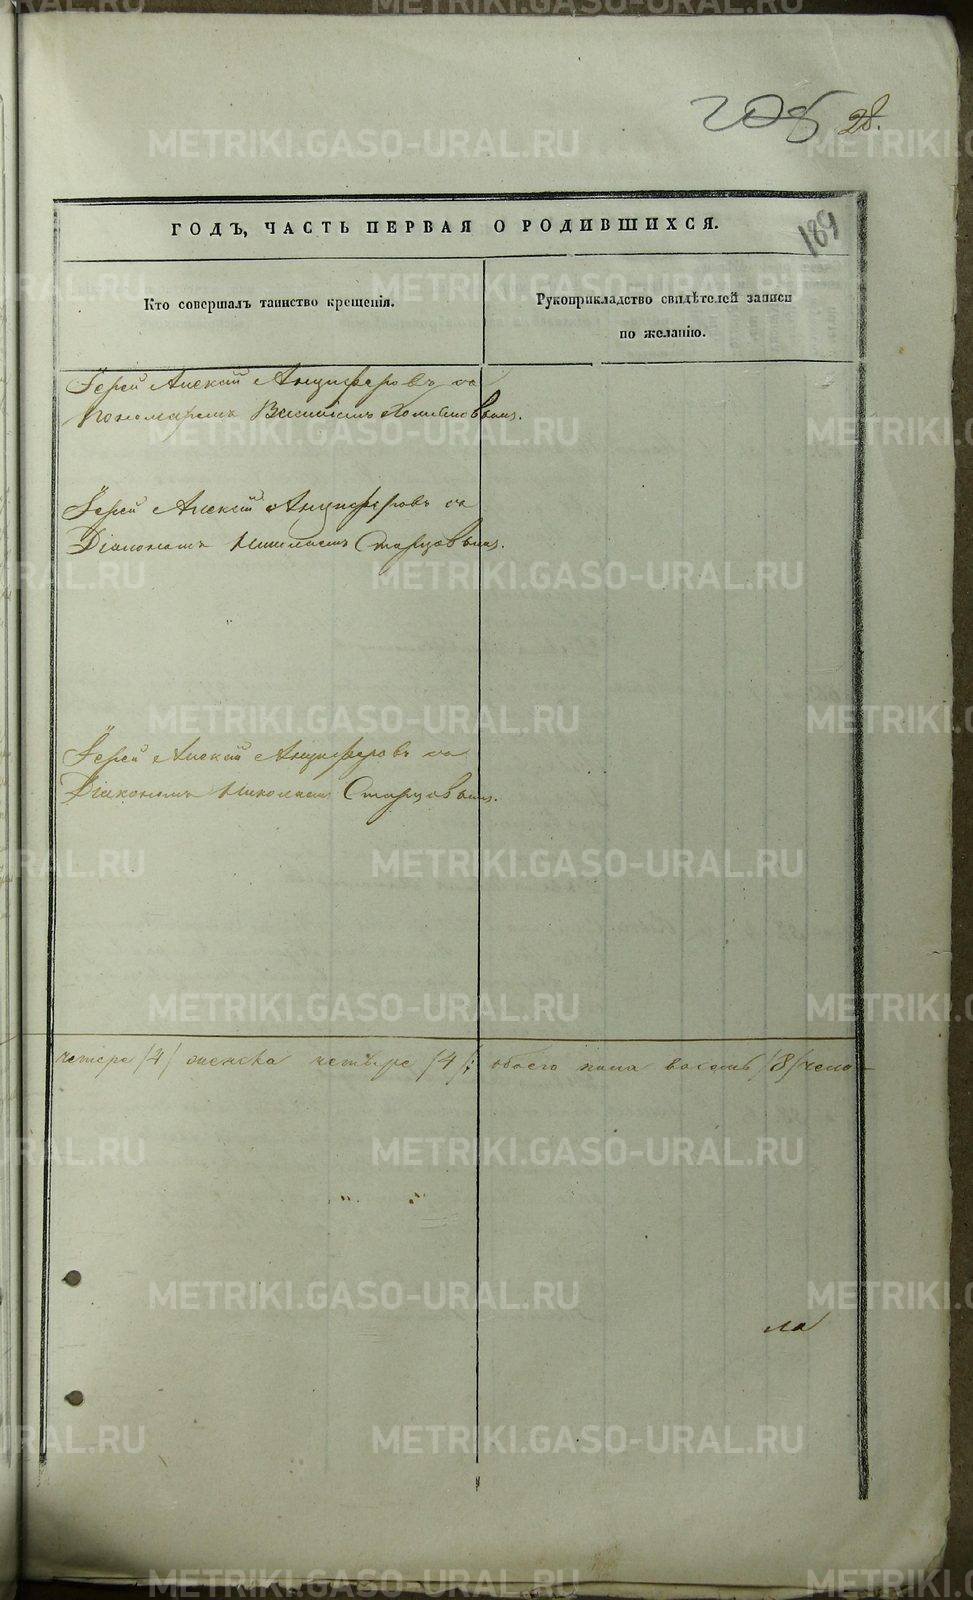 28.
189
ГОДЪ, ЧАСТЬ ПЕРВАЯ О РОДИВШИХСЯ.
Кто совершалъ таинство крещенія.
Рукоприкладство свидѣтелей записи
по желанію.
Іерей Алексій Анциферовъ съ
Пономаремъ Василіемъ
Іерей Алексій Анциферовъ съ
Діакономъ Николаемъ Старцовымъ.
Іерей Алексій Анциферовъ съ
Діакономъ Николаемъ Старцовымъ.
четыре /4/ женска четыре /4/; обоего пола восемь /8/ чело-
ла
METRIKI.GASO-URAL.RU